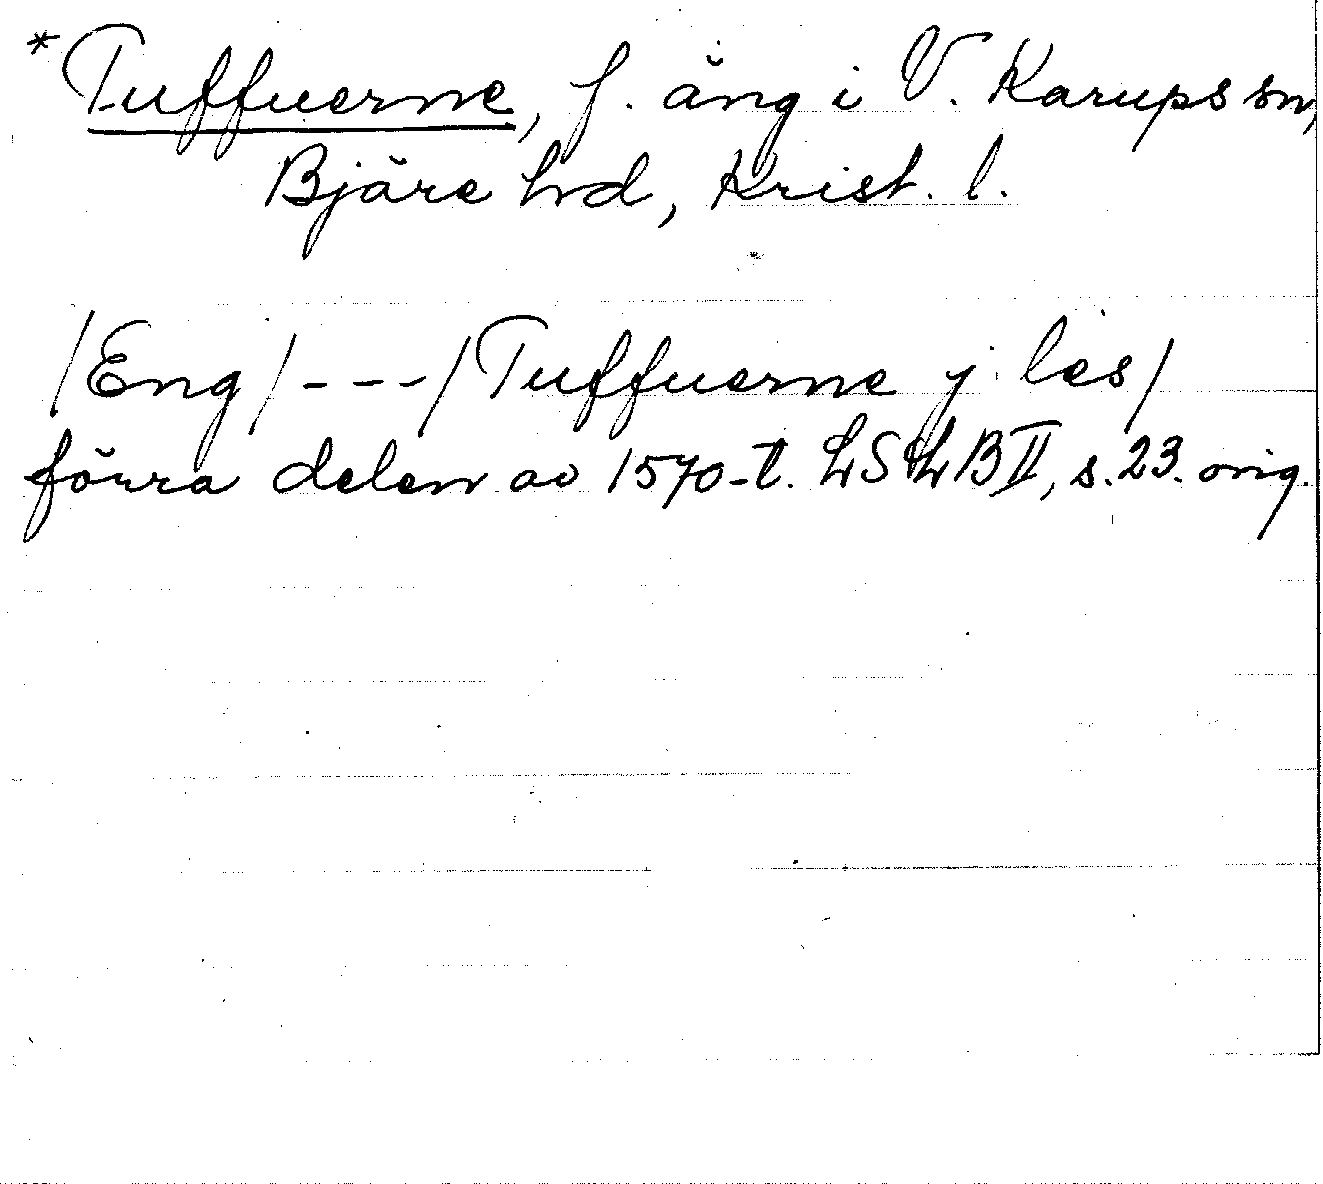 *Tuffuerne, f. äng i V. Karups sn,
Bjäre hrd, Krist. l.
/Eng/---/Tuffuerne j les/
förra delen av 1570-t. LSLB II, s. 23. orig.